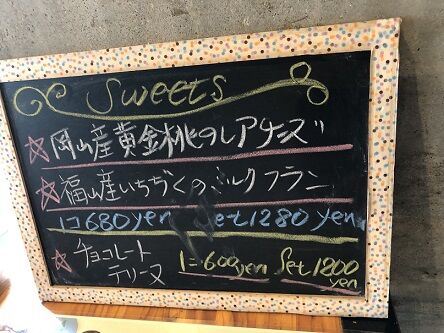 Sweets
☆岡山産黄金桃のレアチーズ
☆福山産いちぢくのミルクフラン
1コ680yen Set1280yen
☆チョコレート
テリーヌ
1コ600yen Set1200
yen